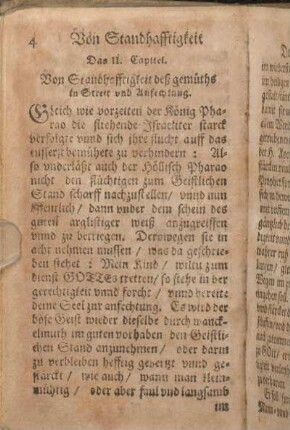 4 Von Standhafftigkeit
Das II. Capitel.
Von Standhefftigkeit deß gemüths
in Streit vnd Anfechtung.
Gleich wie vorzeiten der König Pha-
rao die fliehende Israeliter starck
verfolgte vnnd sich ihre flucht auff das
eusserst bemühete zu verhindern: Al-
so vnderläßt auch der Höllisch Pharao
nicht den flüchtigen zum Geistlichen
Stand scharff nachzustellen/ vnnd nun
/ dann vnder dem schein des
guten arglistiger weiß anzugreiffen
vnnd zu betriegen. Derowegen sie in
acht nehmen müssen/ was da geschrie-
ben stehet: Mein Kind/ wiltu zum
dienst GOTTES tretten/ so stehe in der
gerechtigkeit vnnd forcht/ vnnd bereite
deine Seel zur anfechtung. Es wird der
böse Geist wieder dieselbe durch wanck-
elmuth im guten vorhaben den Geistli-
chen Stand anzunehmen/ oder darin
zu verbleiben hefftig gehetzt vnnd ge-
stärckt/ wie auch/ wann man klein-
müthig/ oder aber faul vnd langsamb
im